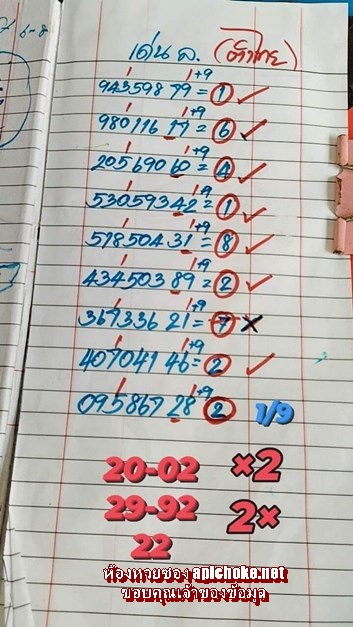 เด่น ล. (ตัวไทย)
943598 79 = 1 ✓
+9
980116 17 = 6 ✓
+9
205690 60 = 4 ✓
+9
530593 42 = 1 ✓
+9
578504 31 = 8 ✓
+9
434503 89 = 2 ✓
+9
367336 21 = 7 ×
+9
407041 46 = 2 ✓
+9
095867 28 2 1/9
20-02 ×2
29-92 2×
22
ห้องหวยซอง apichoke.net
ขอบคุณเจ้าของข้อมูล